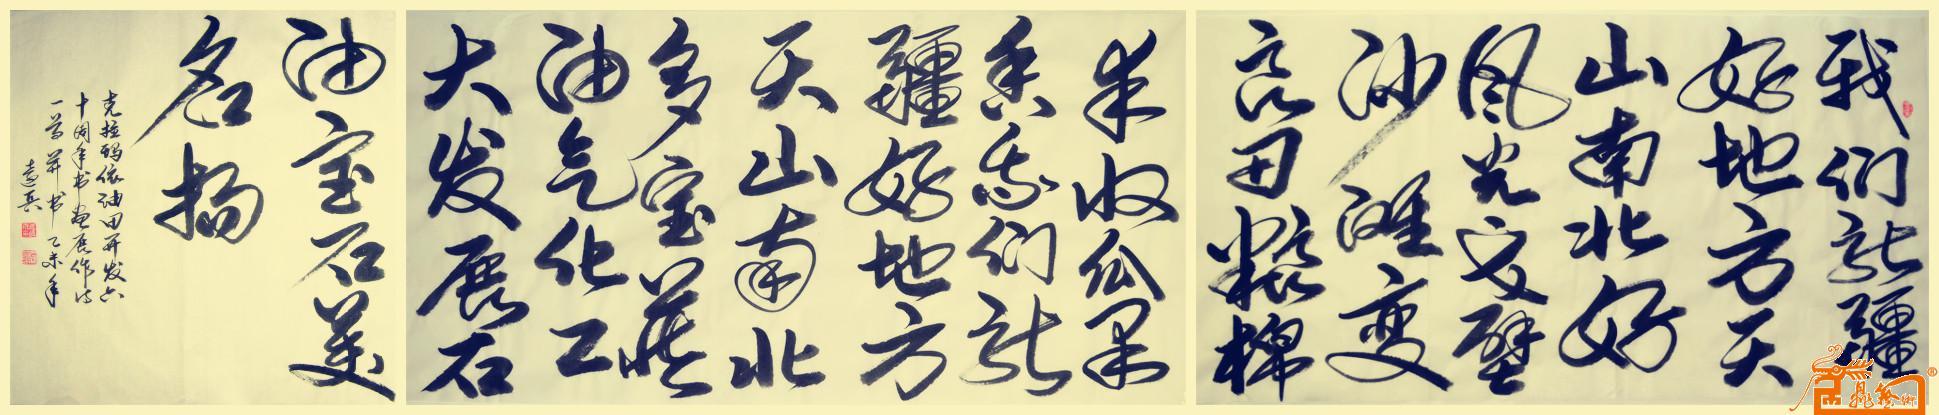 我们新疆
好地方天
山南北好
风光戈壁
沙滩变
良田粮棉
丰收瓜果
香我们新
疆好地方
天山南北
多宝藏
油气化工
大发展石
油宝石美
名扬
克拉玛依油田开发六
十周年书画展作诗
一首并书乙未年